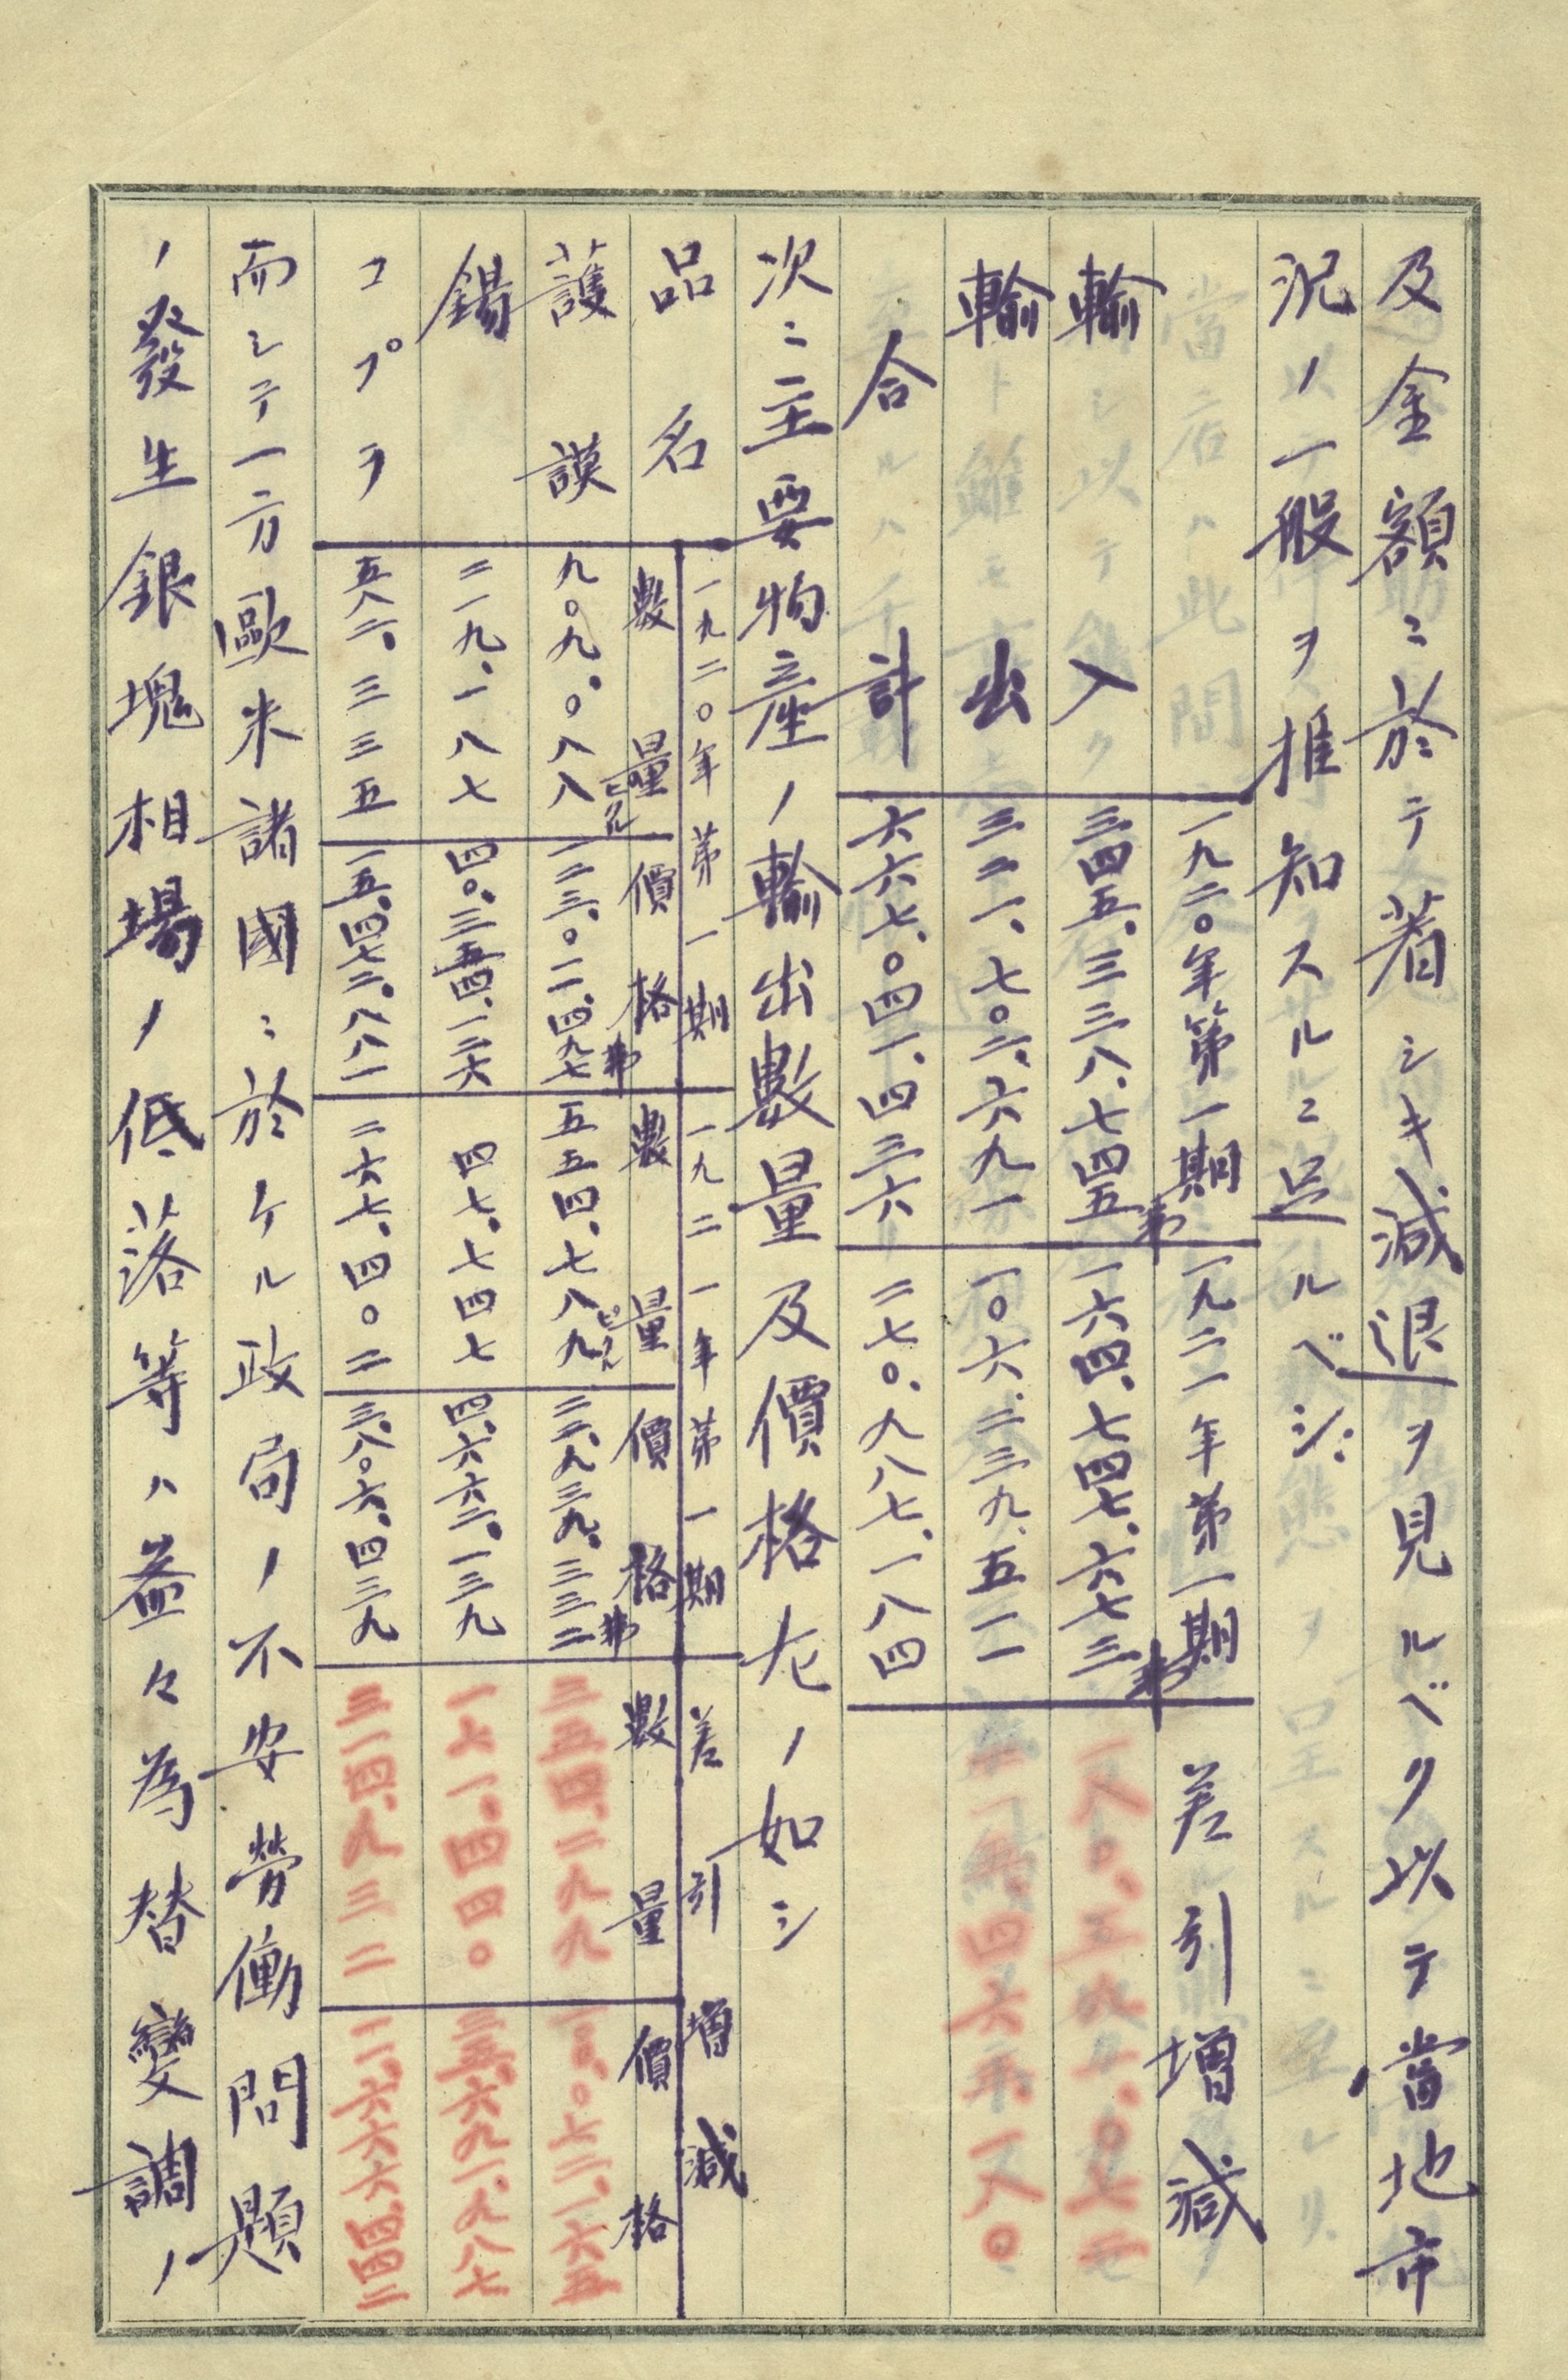 及金額ニ於テ著シキ減退ヲ見ルベク以テ當地市
況ノ一般ヲ推知スルニ足ルベシ
一九二〇年第一期 一九二一年第一期 差引増減
輸入 三四五、三三八、七四五弗 一六四、七四七、六七三弗 一八〇、五九一、〇七二
輸出 三二一、七〇二、六九一 一〇六、二三九、五一一 二一五、四六三、一八〇
合計 六六七、〇四一、四三六 二七〇、九八七、一八四
次ニ主要物産ノ輸出數量及價格左ノ如シ
一九二〇年第一期 一九二一年第一期 差引増減
品名 數量 價格 數量 價格 數量 價格
護謨 九〇九、〇八八ピクル 一二三、〇一一、四九七弗 五五四、七八九ピクル 二二、九三九、三三二弗 三五四、二九九 一〇〇、〇七二、一六五
錫 二一九、一八七 四〇、三五四、一二六 四七、七四七 四、六六二、一三九 一七一、四四〇 三五、六九一、九八七
コプラ 五八二、三三五 一五、四七二、八八一 二六七、四〇二 三、八〇六、四三九 三一四、九三二 一一、六六六、四四二
而シテ一方歐米諸國ニ於ケル政局ノ不安勞働問題
ノ發生銀塊相場ノ低落等ハ益々為替變調ノ